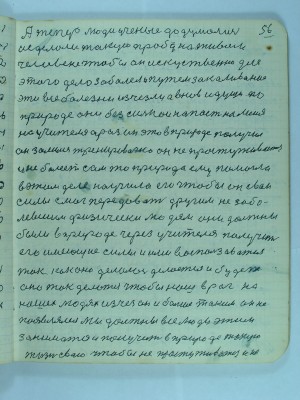 56
А теперь люди ученые додумались
и сделали такую пробу на живом
человеке чтобы он искуственно для
этого дела заболел путем закаливание
эти все болезни изчезли а внов идущие по
природе они без сильной напасть на меня
на учителя а раз им это в природе получил
он занялся тренировкой он не простуживается
и не болеет сам то природа ему помогла
в этим деле научила его чтобы он свои
силы смог передовать другим не забо-
левшим физически людям они должны
были в природе через учителя получить
его имеющие силы и ими воспользоваться
так как оно делалось делается и будет
оно так делатся чтобы наш враг на
наших людях изчез он и больше таким он не
появлялся мы должны все люди этим
заниматся и получить в природе такую
жизнь свою чтобы не простуживатся и не